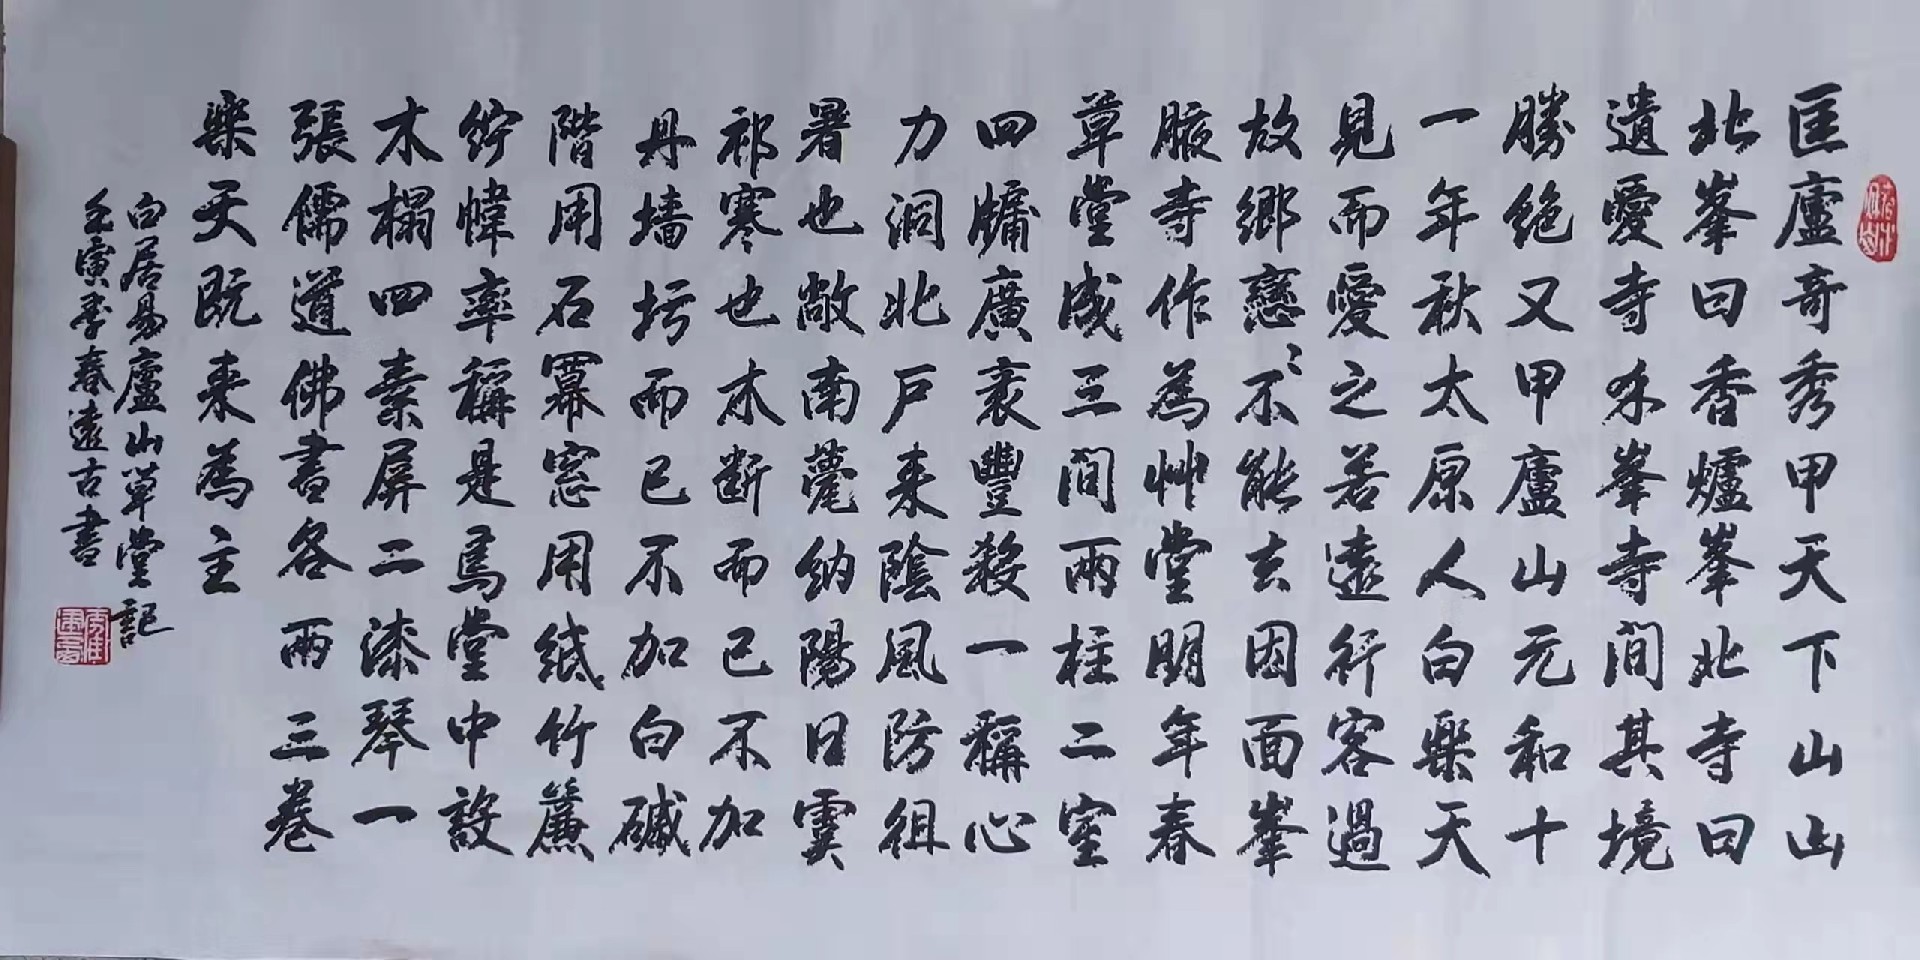 匡廬奇秀甲天下山山
北峯曰香爐峯北寺曰
遺愛寺介峯寺間其境
勝絶又甲廬山元和十
一年秋太原人白樂天
見而愛之若遠行客過
故鄉戀〻不能去因面峯
腋寺作為艸堂明年春
草堂成三間兩柱二室
四牖廣袤豐殺一稱心
力洞北戶来陰風防徂
暑也敞南甍納陽日虞
祁寒也木断而已不加
丹墻圬而已不加白碱
階用石冪窓用紙竹簾
紵幃率稱是焉堂中設
木榻四素屏二漆琴一
張儒道佛書各兩三卷
樂天既来為主
白居易廬山草堂記
壬寅季春遠古書